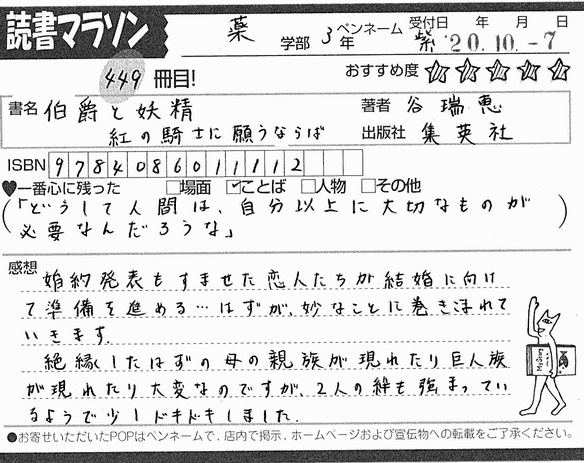 読書マラソン
薬 学部 3年 ペンネーム 紫 受付日 年 月 日
'20.10.-7
449 冊目!
おすすめ度 ☆☆☆☆☆
書名 伯爵と妖精
紅の騎士に願うならば
著者 谷瑞恵
出版社 集英社
ISBN 9784086011112
♥一番心に残った □場面 ☑ことば □人物 □その他
(「どうして人間は、自分以上に大切なものが
必要なんだろうな」)
感想
婚約発表もすませた恋人たちが結婚に向け
て準備を進める…はずが、妙なことに巻きこまれて
いきます。
絶縁したはずの母の親族が現れたり巨人族
が現れたり大変なのですが、2人の絆も強まってい
るようで少しドキドキしました。
Mystery
●お寄せいただいたPOPはペンネームで、店内で掲示、ホームページおよび宣伝物への転載をご了承ください。